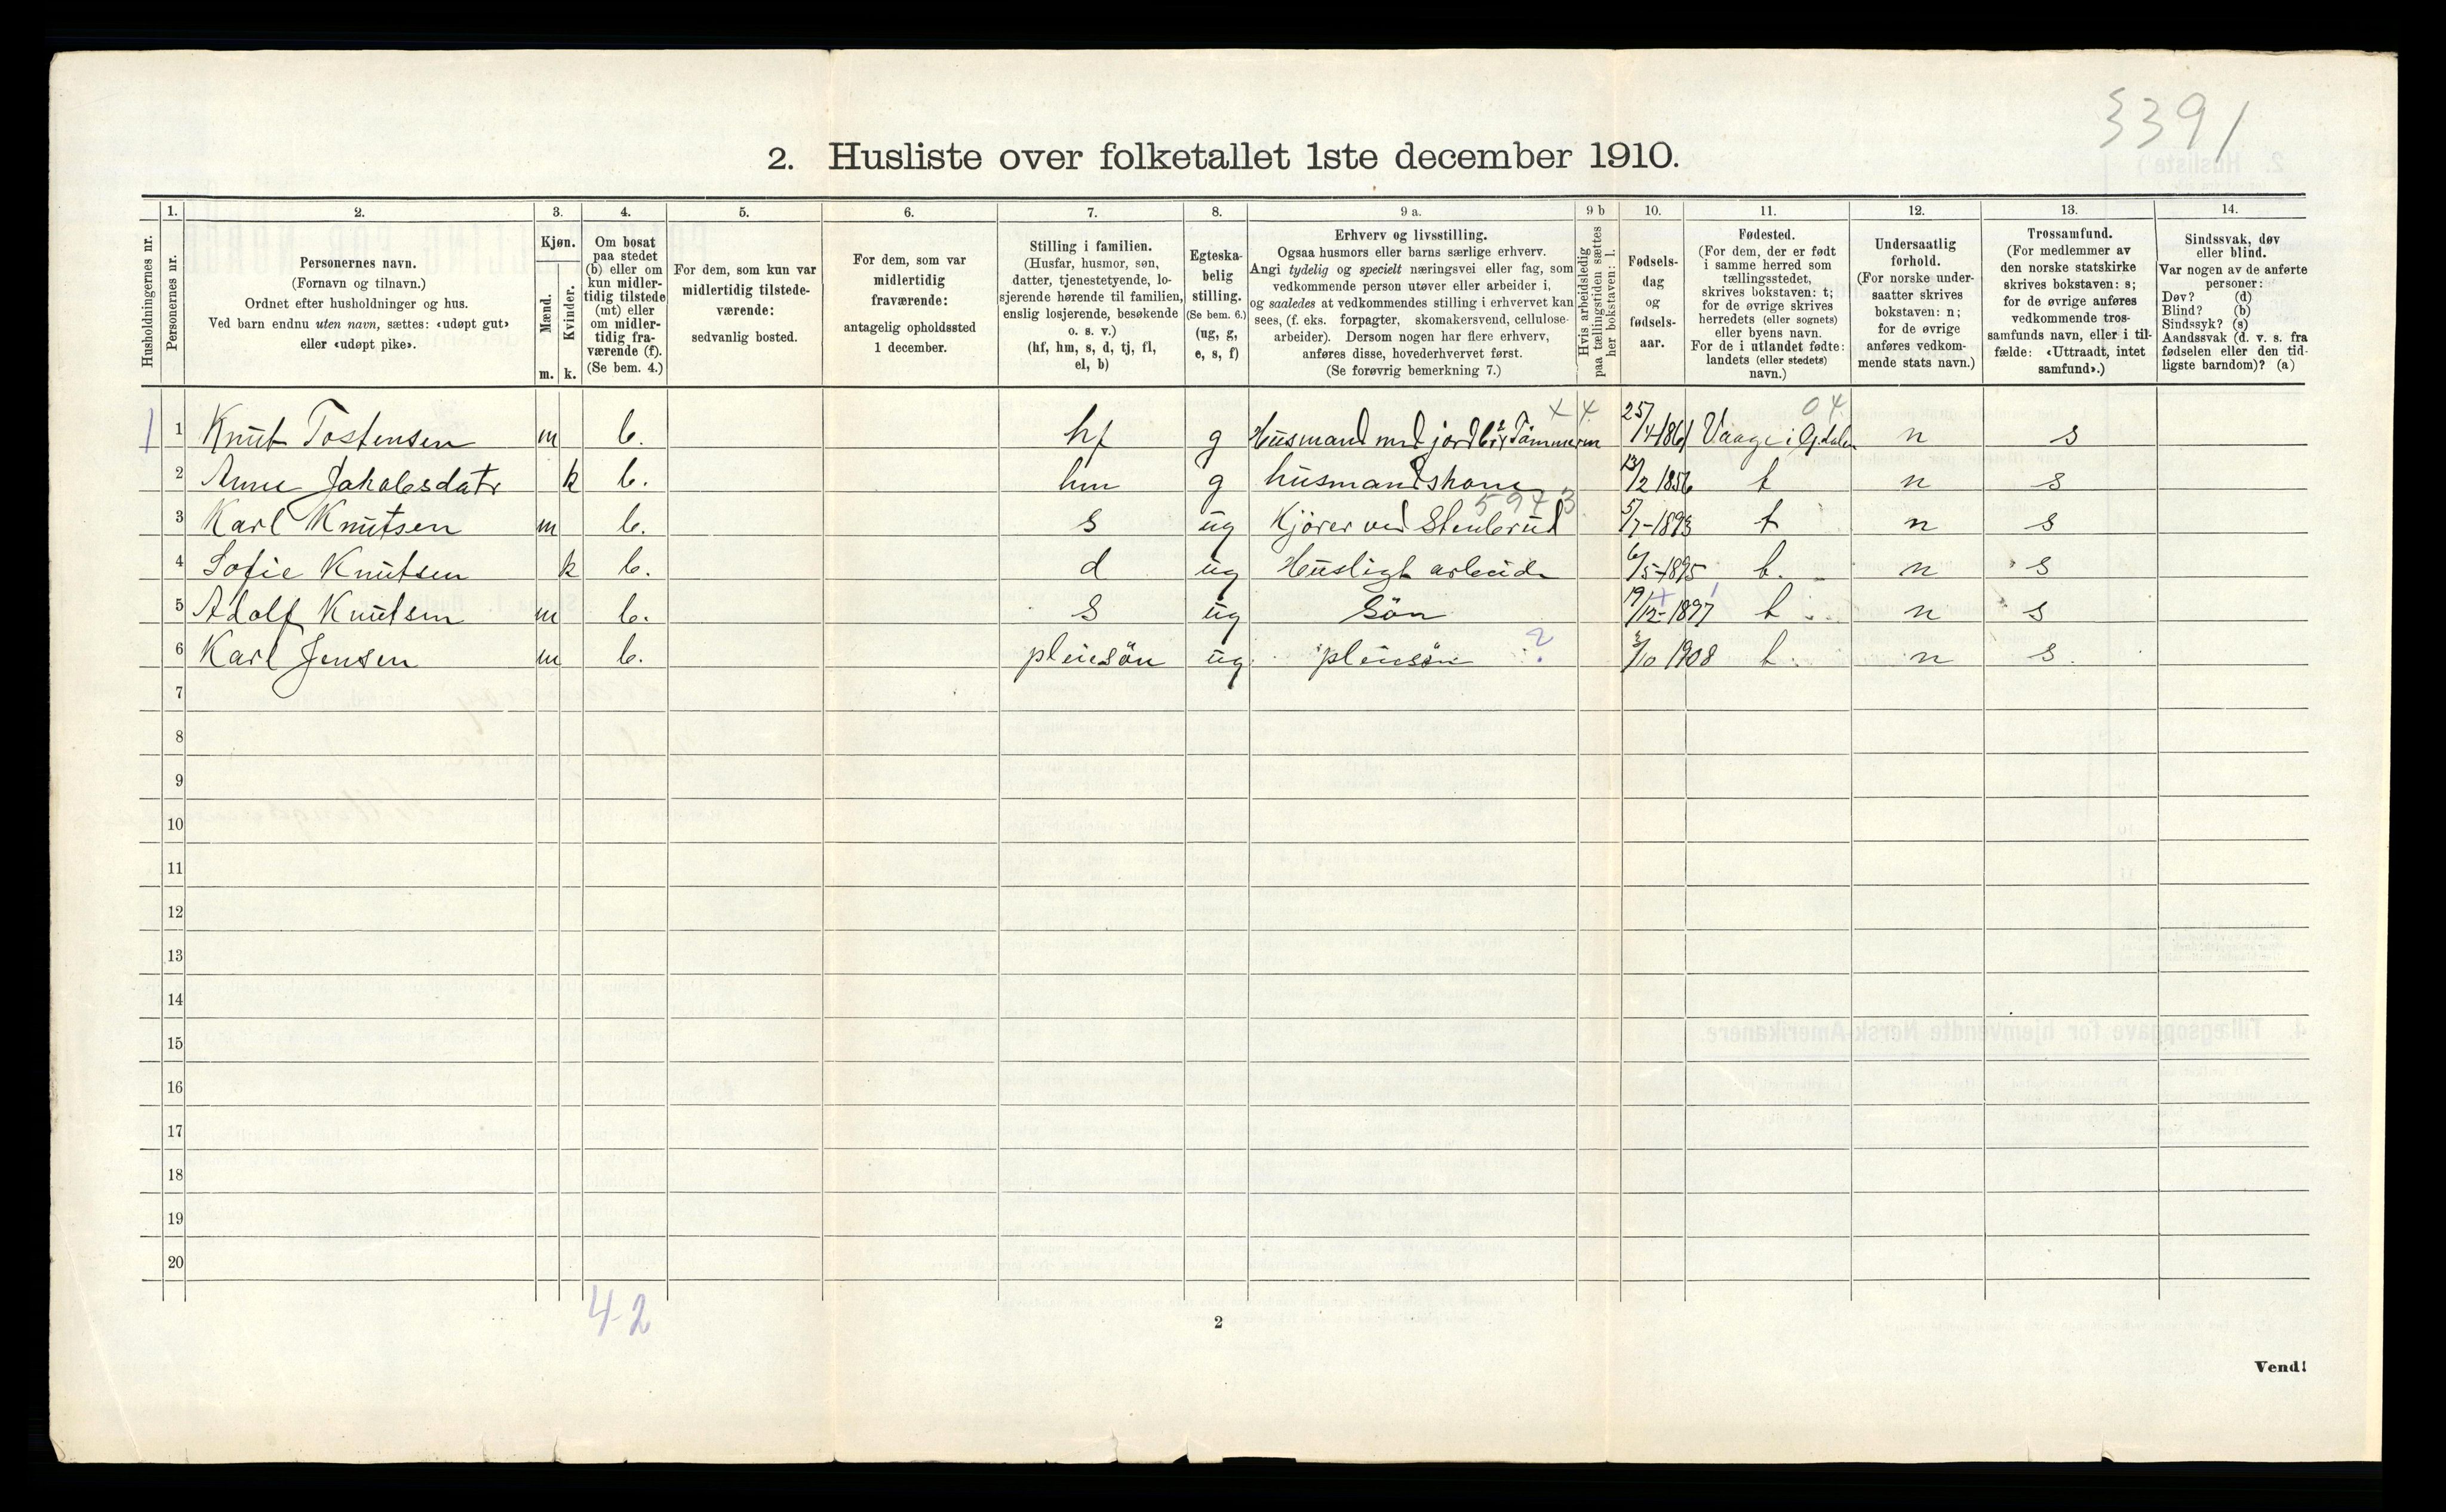 3391
2. Husliste over folketallet 1ste december 1910.
Husholdningernes nr.
1.
Personernes nr.
2.
Personernes navn.
(Fornavn og tilnavn.)
Ordnet efter husholdninger og hus.
Ved barn endnu uten navn, sættes: «udøpt gut»
eller «udøpt pike».
3.
Kjøn.
Mænd.
Kvinder.
m. k.
4.
Om bosat
paa stedet
(b) eller om
kun midler-
tidig tilstede
(mt) eller
om midler-
tidig fra-
værende (f).
(Se bem. 4.)
5.
For dem, som kun var
midlertidig tilstede-
værende:
sedvanlig bosted.
6.
For dem, som var
midlertidig
fraværende:
antagelig opholdssted
1 december.
7.
Stilling i familien.
(Husfar, husmor, søn,
datter, tjenestetyende, lo-
sjerende hørende til familien,
enslig losjerende, besøkende
o. s. v.)
(hf, hm, s, d, tj, fl,
el, b)
8.
Egteska-
belig
stilling.
(Se bem. 6.)
(ug, g,
e, s, f)
9 a.
Erhverv og livsstilling.
Ogsaa husmors eller barns særlige erhverv.
Angi tydelig og specielt næringsvei eller fag, som
vedkommende person utøver eller arbeider i,
og saaledes at vedkommendes stilling i erhvervet kan
sees, (f. eks. forpagter, skomakersvend, cellulose-
arbeider). Dersom nogen har flere erhverv,
anføres disse, hovederhvervet først.
(Se forøvrig bemerkning 7.)
9 b
Hvis arbeidsledig
paa tællingstiden sættes
her bokstaven: l.
10.
Fødsels-
dag
og
fødsels-
aar.
11.
Fødested.
(For dem, der er født
i samme herred som
tællingsstedet,
skrives bokstaven: t;
for de øvrige skrives
herredets (eller sognets)
eller byens navn.
For de i utlandet fødte:
landets (eller stedets)
navn.)
12.
Undersaatlig
forhold.
(For norske under-
saatter skrives
bokstaven: n;
for de øvrige
anføres vedkom-
mende stats navn.)
13.
Trossamfund.
(For medlemmer av
den norske statskirke
skrives bokstaven: s;
for de øvrige anføres
vedkommende tros-
samfunds navn, eller i til-
fælde: «Uttraadt, intet
samfund».)
14.
Sindssvak, døv
eller blind.
Var nogen av de anførte
personer:
Døv? (d)
Blind? (b)
Sindssyk? (s)
Aandssvak (d. v. s. fra
fødselen eller den tid-
ligste barndom)? (a)
x 4 04
1 1 Knut Tostensen m b. hf g Husmand med jord 25/4 1861 Vaage i n s
2 Anne Jakobsdatr k b. hm g husmandskone 13/2 1856 t n s
5943
3 Karl Knutsen m b. s ug Kjörer ved Stenberud 5/7-1893 t n s
4 Sofie Knutsen k b. d ug Husligt arbeide 6/5-1895 t. n s
5 Adolf Knutsen m b. s ug Sön 19/12-1897 t n s
6 Karl Jensen m b. pleiesön ug. pleiesön ? 3/10 1908 t. n s.
7
8
9
10
11
12
13
14
15
16
17
18
19
20
4-2
2
Vend!